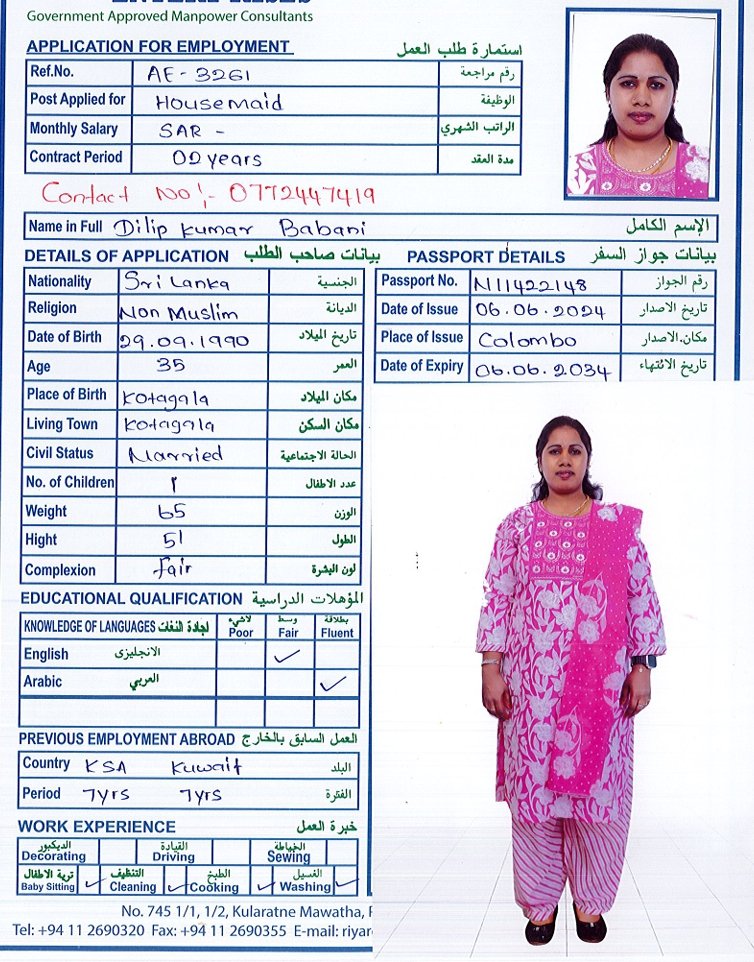 Government Approved Manpower Consultants
APPLICATION FOR EMPLOYMENT استمارة طلب العمل
Ref.No. AE - 3261 رقم مراجعة
Post Applied for Housemaid الوظيفة
Monthly Salary SAR - الراتب الشهري
Contract Period 02 years مدة العقد
Contact No :- 0772447419
Name in Full Dilip kumar Babani الإسم الكامل
DETAILS OF APPLICATION بيانات صاحب الطلب
Nationality Sri Lanka الجنسية
Religion Non Muslim الديانة
Date of Birth 29.09.1990 تاريخ الميلاد
Age 35 العمر
Place of Birth Kotagala مكان الميلاد
Living Town Kotagala مكان السكن
Civil Status Married الحالة الاجتماعية
No. of Children 1 عدد الاطفال
Weight 65 الوزن
Hight 51 الطول
Complexion fair لون البشرة
PASSPORT DETAILS بيانات جواز السفر
Passport No. N11422148 رقم الجواز
Date of Issue 06.06.2024 تاريخ الاصدار
Place of Issue Colombo مكان.الاصدار
Date of Expiry 06.06.2034 تاريخ الانتهاء
EDUCATIONAL QUALIFICATION المؤهلات الدراسية
KNOWLEDGE OF LANGUAGES اجادة اللغات Poor وسط Fair Fluent
English الانجليزى ✓
Arabic العربي ✓
PREVIOUS EMPLOYMENT ABROAD العمل السابق بالخارج
Country KSA Kuwait البلد
Period 7yrs 7yrs الفترة
WORK EXPERIENCE خبرة العمل
الديكور Decorating القيادة Driving الخياطة Sewing
تربة الاطفال Baby Sitting ✓ التنظيف Cleaning ✓ الطبخ Cooking ✓ الغسيل Washing ✓
No. 745 1/1, 1/2, Kularatne Mawatha,
Tel: +94 11 2690320 Fax: +94 11 2690355 E-mail: riyar